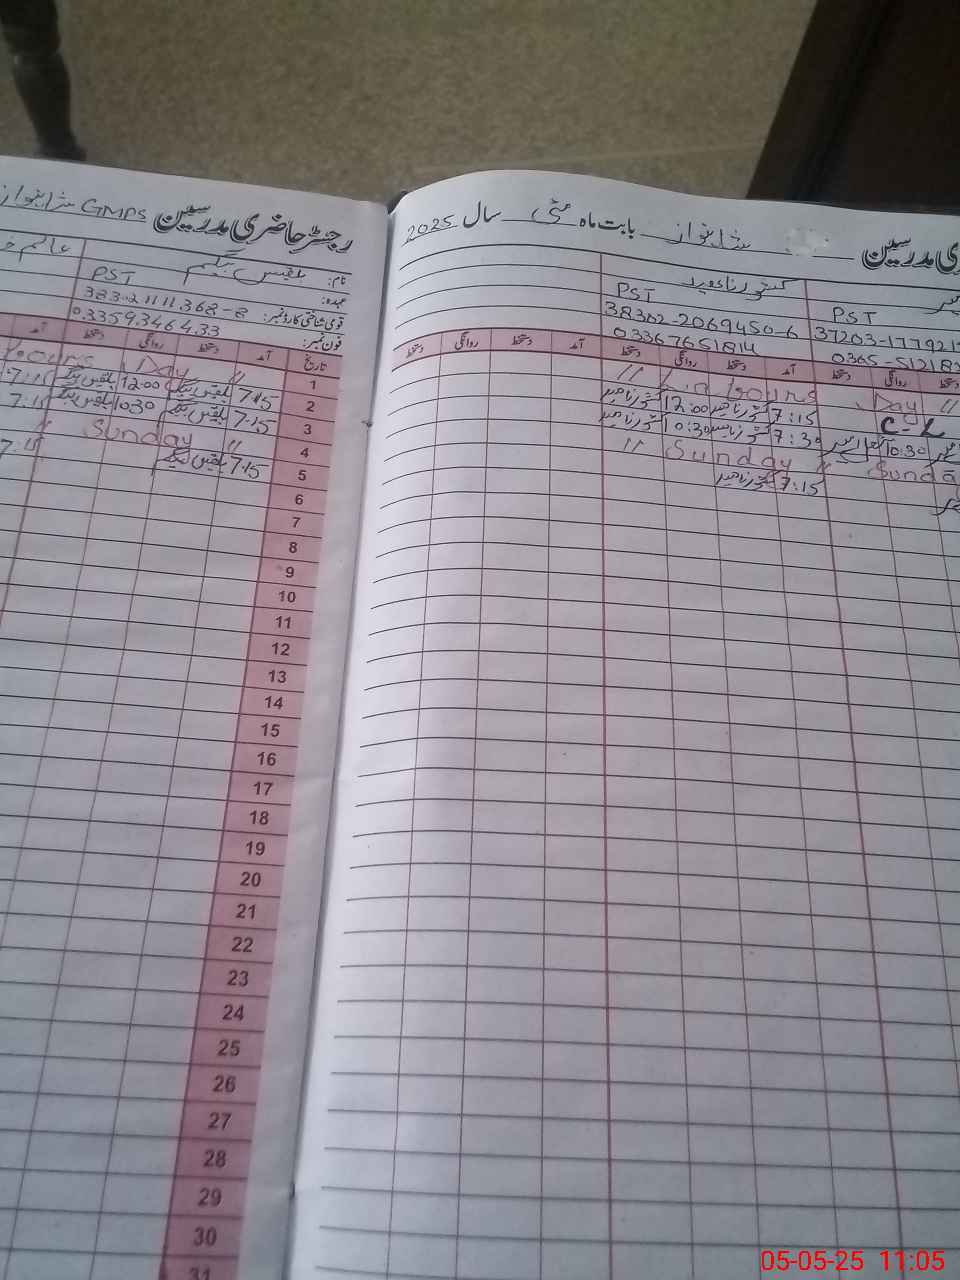 رجسٹر حاضری مدرسین GMPS شاہنواز
نام: بلقیس بیگم
عہدہ: PST
قومی شناختی کارڈ نمبر: 38302-1111368-8
فون نمبر: 03359346433
تاریخ آمد دستخط روانگی دستخط آمد
1 // Day Labours
2 7:15 بلقیس بیگم 12:00 بلقیس بیگم 7:15
3 7:15 بلقیس بیگم 10:30 بلقیس بیگم 7:15
4 // Sunday //
5 7:15 بلقیس بیگم 7:15
6
7
8
9
10
11
12
13
14
15
16
17
18
19
20
21
22
23
24
25
26
27
28
29
30
31
مدرسین شاہنواز بابت ماہ مئی سال 2025
PST
37203-17792
0365-5121
دستخط روانگی دستخط
// Day
C-L
10:30
Sunda
کشور ناہید
PST
38302-2069450-6
03367651814
آمد دستخط روانگی دستخط آمد دستخط روانگی دستخط
// Labours
7:15 کشور ناہید 12:00 کشور ناہید
7:30 کشور ناہید 10:30 کشور ناہید
// Sunday //
7:15 کشور ناہید
05-05-25 11:05